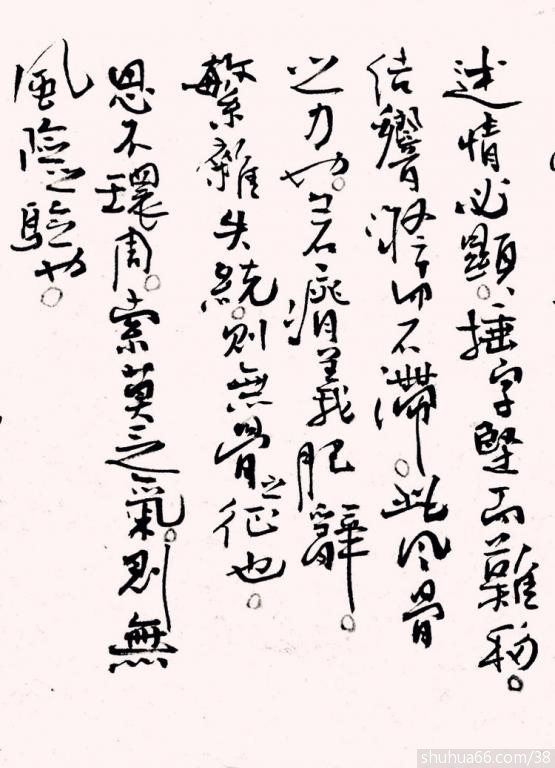 述情必顯。捶字堅而難移。
结響凝而不滯。此风骨
之力也。若瘠義肥辭。
繁雜失統。則無骨之征也。
思不環周。索莫乏氣。則無
風險之驗也。
shuhua66.com/38